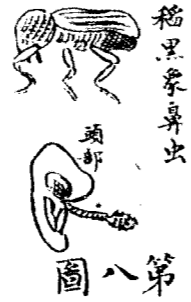 稻黑象鼻虫
頭部
第八圖